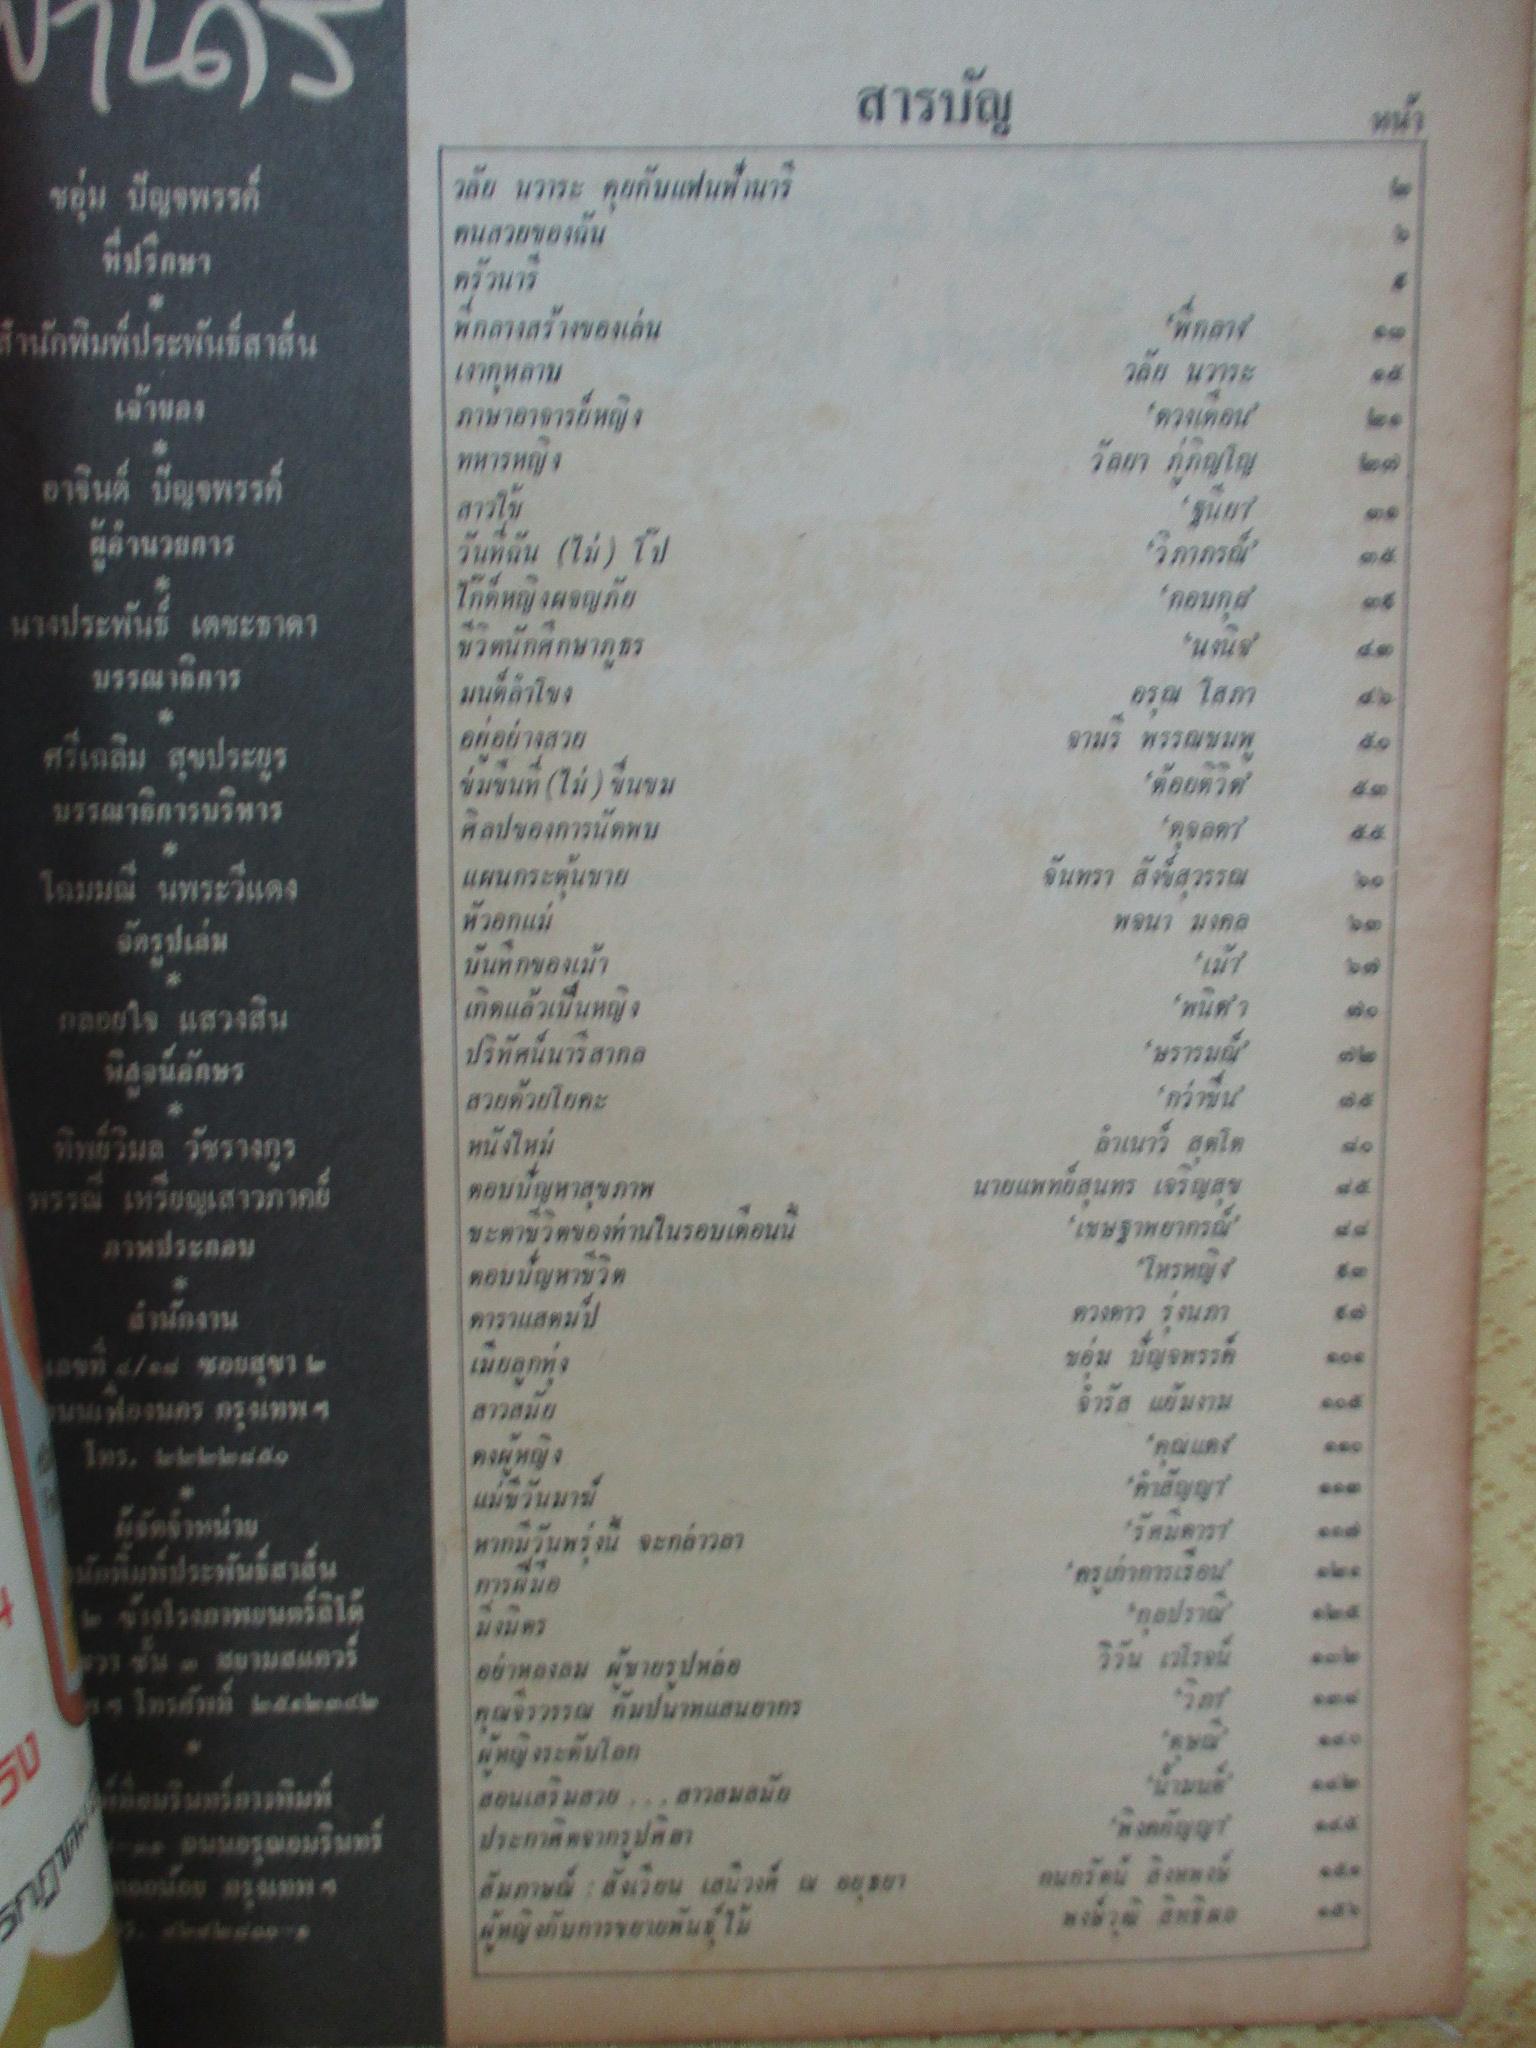 ชอุ่ม ปัญจพรรค์
ที่ปรึกษา
*
สำนักพิมพ์ประพันธ์สาส์น
เจ้าของ
*
อาจินต์ ปัญจพรรค์
ผู้อำนวยการ
*
นางประพันธ์ เตชะธาดา
บรรณาธิการ
*
ศรีเฉลิม สุขประยูร
บรรณาธิการบริหาร
*
โฉมมณี นพระวีแดง
จัดรูปเล่ม
*
กลอยใจ แสวงสิน
พิสูจน์อักษร
*
ทิพย์วิมล วัชรางกูร
พรรณี เหรียญเสาวภาคย์
ภาพประกอบ
*
สำนักงาน
เลขที่ ๔/๑๘ ซอยสุขา ๒
เฟื่องนคร กรุงเทพฯ
โทร. ๒๒๒๒๘๕๐
*
ผู้จัดจำหน่าย
ประพันธ์สาส์น
๒ ข้างโรงภาพยนตร์ลิโด้
ชั้น ๑ สยามสแควร์
โทรศัพท์ ๒๕๑๒๓๔๒
*
ถนนอรุณอมรินทร์
กรุงเทพฯ
สารบัญ
หน้า
วลัย นวาระ คุยกับแฟนฟ้านารี ๒
คนสวยของฉัน ๖
ครัวนารี ๙
พี่กลางสร้างของเล่น 'พี่กลาง' ๑๓
เงากุหลาบ วลัย นวาระ ๑๕
ภาษาอาจารย์หญิง 'ดวงเดือน' ๒๑
ทหารหญิง วัลยา ภู่ภิญโญ ๒๗
สาวใช้ 'ฐนียา' ๓๑
วันที่ฉัน (ไม่) โป๊ 'วิภาภรณ์' ๓๕
ไก๊ด์หญิงผจญภัย 'กอบกุล' ๓๙
ชีวิตนักศึกษาภูธร 'นงนิจ' ๔๓
มนต์ลำโขง อรุณ โสภา ๔๖
อยู่อย่างสวย จามรี พรรณชมพู ๕๐
ข่มขืนที่(ไม่)ขื่นขม 'ต้อยติวิด' ๕๓
ศิลปของการนัดพบ 'ดุจลดา' ๕๕
แผนกระตุ้นชาย จันทรา สังข์สุวรรณ ๖๐
หัวอกแม่ พจนา มงคล ๖๓
บันทึกของเม้า 'เม้า' ๖๗
เกิดแล้วเป็นหญิง 'พนิดา' ๗๐
ปริทัศน์นารีสากล 'ษรารมณ์' ๗๒
สวยด้วยโยคะ 'กว่าชื่น' ๗๕
หนังใหม่ ลำเนาว์ สุตโต ๘๐
ตอบปัญหาสุขภาพ นายแพทย์สุนทร เจริญสุข ๘๕
ชะตาชีวิตของท่านในรอบเดือนนี้ 'เชษฐาพยากรณ์' ๘๘
ตอบปัญหาชีวิต 'โหรหญิง' ๙๓
ดาราแสตมป์ ดวงดาว รุ่งนภา ๙๗
เมียลูกทุ่ง ชอุ่ม ปัญจพรรค์ ๑๐๑
สาวสมัย จำรัส แย้มงาม ๑๐๕
ดงผู้หญิง 'คุณแดง' ๑๑๐
แม่ชีวันมาฆ์ 'คำสัญญา' ๑๑๓
หากมีวันพรุ่งนี้ จะกล่าวลา 'รัศมีดารา' ๑๑๗
การฝีมือ 'ครูเก่าการเรือน' ๑๒๑
มิ่งมิตร 'กุลปราณี' ๑๒๕
อย่าหลงลม ผู้ชายรูปหล่อ วิวัน เวโรจน์ ๑๓๒
คุณจีรวรรณ กัมปนาทแสนยากร 'วิภา' ๑๓๘
ผู้หญิงระดับโลก 'ดุษณี' ๑๔๐
สอนเสริมสวย...สาวสมสมัย 'น้ำมนต์' ๑๔๒
ประกาศิตจากรูปศิลา 'พิงคกัญญา' ๑๔๕
สัมภาษณ์ : สังเวียน เสนีวงศ์ ณ อยุธยา กนกรัตน์ สิงหพงษ์ ๑๕๑
ผู้หญิงกับการขยายพันธุ์ไม้ พงษ์วุฒิ สิทธิผล ๑๕๖